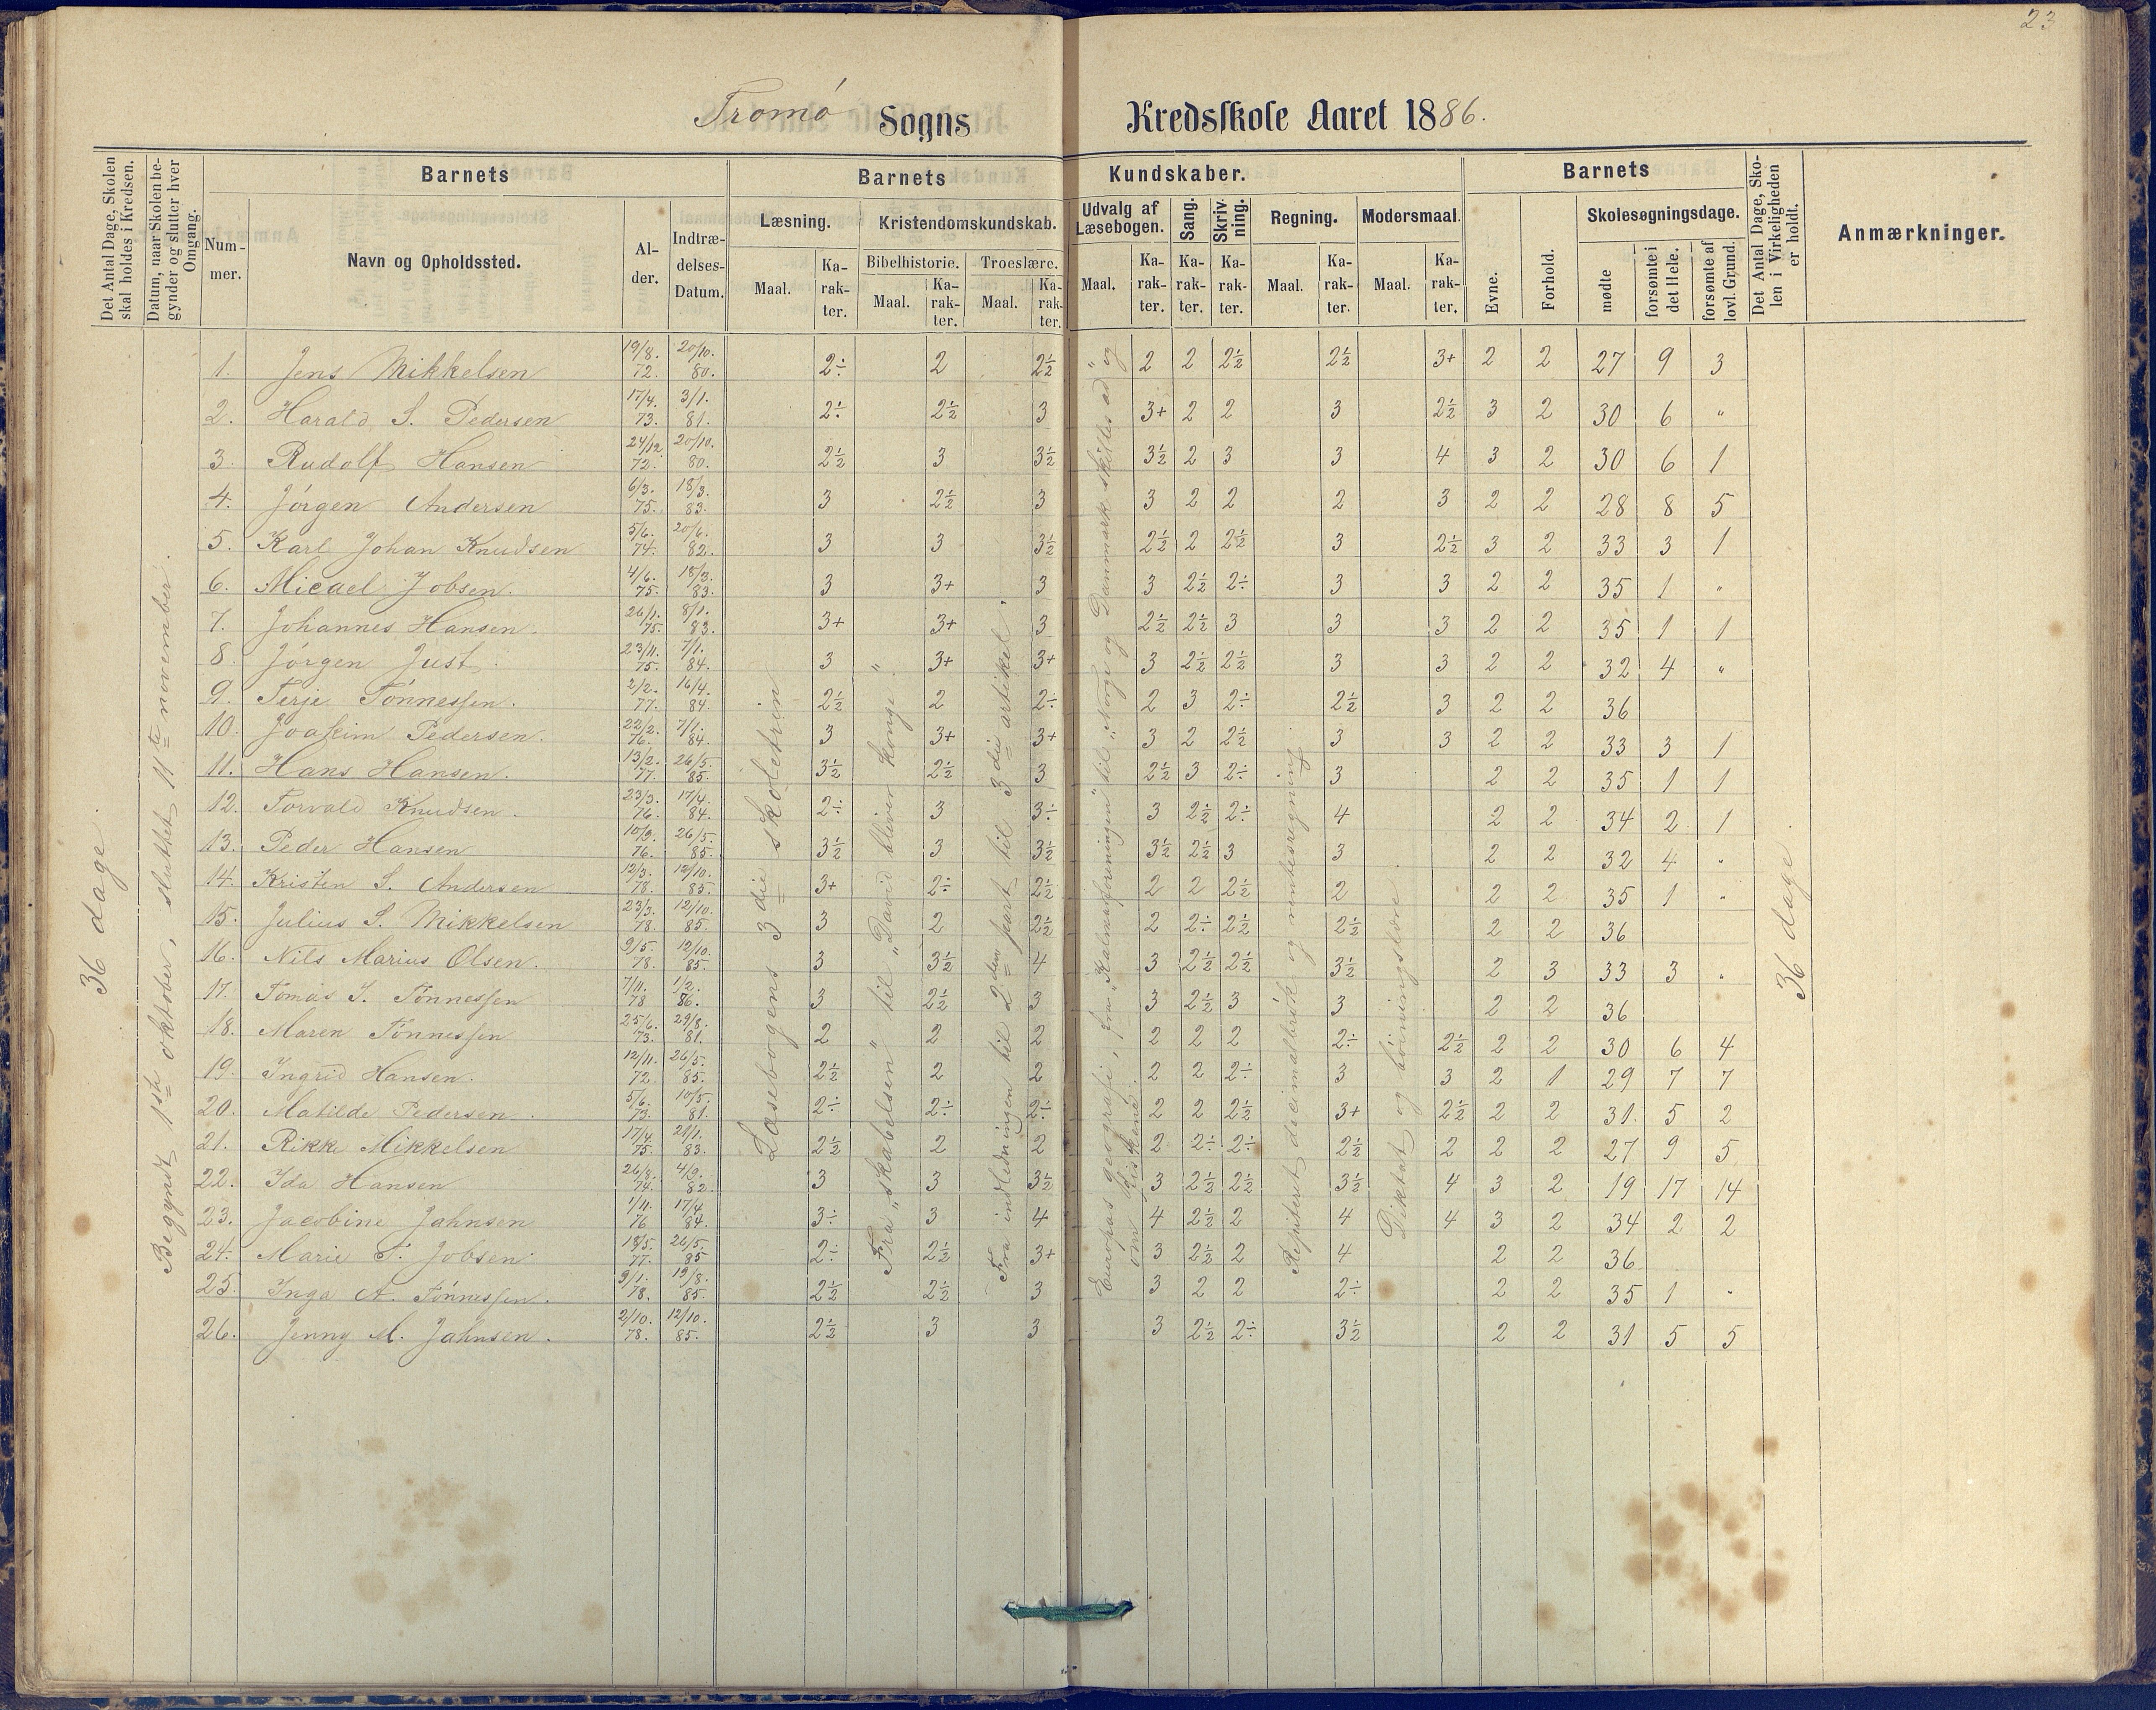 23
Tromø Sogns Kredsskole Aaret 1886.
Det Antal Dage, Skolen skal holdes i Kredsen.
Datum, naar Skolen begynder og slutter hver Omgang.
Barnets
Nummer.
Navn og Opholdssted.
Alder.
Indtrædelses-Datum.
Barnets Kundskaber.
Læsning.
Maal.
Karakter.
Kristendomskundskab.
Bibelhistorie.
Maal.
Karakter.
Troeslære.
Maal.
Karakter.
Udvalg af Læsebogen.
Maal.
Karakter.
Sang.
Karakter.
Skrivning.
Karakter.
Regning.
Maal.
Karakter.
Modersmaal.
Maal.
Karakter.
Barnets
Evne.
Forhold.
Skolesøgningsdage.
mødte
forsømte i det Hele.
forsømte af lovl. Grund.
Det Antal Dage, Skolen i Virkeligheden er holdt.
Anmærkninger.
36 dage.
Begyndt 1ste oktober, sluttet 11te november.
Læsebogens 3die skoletrin
Fra "skabelsen" til "David bliver konge".
Fra indledningen til 2den part til 3die artikel.
Europas geografi, fra "Kalmarforeningen" til "Norge og Danmark skilles ad" og om fiskene.
Repiteret decimalbrøk og rentesregning.
Diktat og bøiningslære
36 dage.
1. Jens Mikkelsen 19/8. 72. 20/10. 80. 2÷ 2 2½ 2 2 2½ 2½ 3+ 2 2 27 9 3
2. Harald S. Pedersen 17/4. 73. 3/1. 81. 2÷ 2½ 3 3+ 2 2 3 2½ 3 2 30 6 "
3. Rudolf Hansen 24/12. 72. 20/10. 80. 2½ 3 3½ 3½ 2 3 3 4 3 2 30 6 1
4. Jørgen Andersen 6/3. 75. 18/3. 83. 3 2½ 3 3 2 2 2 3 2 2 28 8 5
5. Karl Johan Knudsen 5/6. 74. 20/6. 82. 3 3 3½ 2½ 2 2½ 3 2½ 3 2 33 3 1
6. Micael Jobsen. 4/6. 75. 18/3. 83. 3 3+ 3 3 2½ 2÷ 3 3 2 2 35 1 "
7. Johannes Hansen. 26/1. 75. 8/1. 83. 3+ 3+ 3 2½ 2½ 3 3 3 2 2 35 1 1
8. Jørgen Just. 23/11. 75. 7/1. 84. 3 3+ 3+ 3 2½ 2½ 3 3 2 2 32 4 "
9. Terje Tønnessen. 2/2. 77. 16/4. 84. 2½ 2 2÷ 2 3 2÷ 2½ 3 2 2 36
10. Joakim Pedersen. 22/2. 76. 7/1. 84. 3 3+ 3+ 3 2 2½ 3 3 2 2 33 3 1
11. Hans Hansen. 13/2. 77. 26/5. 85. 3½ 2½ 3 2½ 3 2÷ 3 2 2 35 1 1
12. Torvald Knudsen. 23/3. 76. 17/4. 84. 2÷ 3 3÷ 3 2½ 2÷ 4 2 2 34 2 1
13. Peder Hansen 10/9. 76. 26/5. 85. 3½ 3 3½ 3½ 2½ 3 3 2 2 32 4 "
14. Kristen S. Andersen 12/3. 78. 12/10. 85. 3+ 2÷ 2½ 2 2 2½ 2 2 2 35 1 "
15. Julius S. Mikkelsen 23/3. 78. 12/10. 85. 3 2 2½ 2 2÷ 2½ 2½ 2 2 36
16. Nils Marius Olsen. 9/5. 78. 12/10. 85. 3 3½ 4 3 2½ 2½ 3½ 2 3 33 3 "
17. Tomas J. Tønnessen 7/11. 78 1/2. 86. 3 2½ 3 3 2½ 3 3 2 2 36
18. Maren Tønnessen 25/6. 73. 29/8. 81. 2 2 2 2 2 2 2÷ 2½ 2 2 30 6 4
19. Ingrid Hansen. 12/11. 72. 26/5. 85. 2½ 2 2 2 2 2÷ 3 3 2 1 29 7 7
20. Matilde Pedersen. 5/6. 73. 10/5. 81. 2÷ 2÷ 2÷ 2 2 2½ 3+ 2½ 2 2 31. 5 2
21. Rikke Mikkelsen 17/4. 75. 21/1. 83. 2½ 2 2 2 2÷ 2÷ 2½ 2 2 2 27 9 5
22. Ida Hansen 26/8. 74. 4/9. 82. 3 3 3½ 3 2½ 2½ 3½ 4 3 2 19 17 14
23. Jacobine Jahnsen 1/11. 76 17/4. 84. 3÷ 3 4 4 2½ 2 4 4 3 2 34 2 2
24. Marie T. Jobsen. 18/5. 77. 26/5. 85 2÷ 2½ 3+ 3 2½ 2 4 2 2 36
25. Inga A. Tønnessen. 9/1. 78. 19/8. 85. 2½ 2½ 3 3 2 2 2÷ 2 2 35 1 "
26. Jenny M. Jahnsen. 2/10. 78. 12/10. 85. 2½ 3 3 3 2½ 2÷ 3½ 2 2 31 5 5